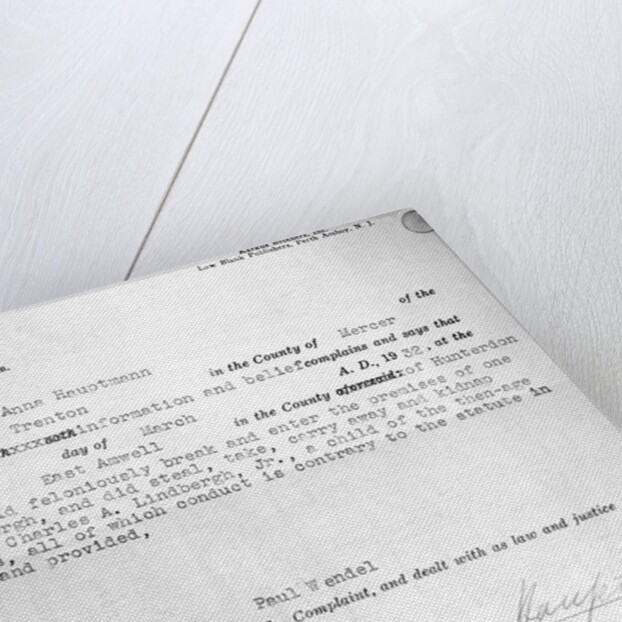 Law Blank Publishers, Perth Amboy, N. J.
of the
Anna Hauptmann in the County of Mercer
Trenton information and belief complains and says that
day of March A. D., 19 32, at the
East Amwell in the County aforesaid: of Hunterdon
feloniously break and enter the premises of one
rgh, and did steal, take, carry away and kidnap
Charles A. Lindbergh, Jr., a child of the then-age
, all of which conduct is contrary to the statute in
and provided,
Paul Wendel
Complaint, and dealt with as law and justice